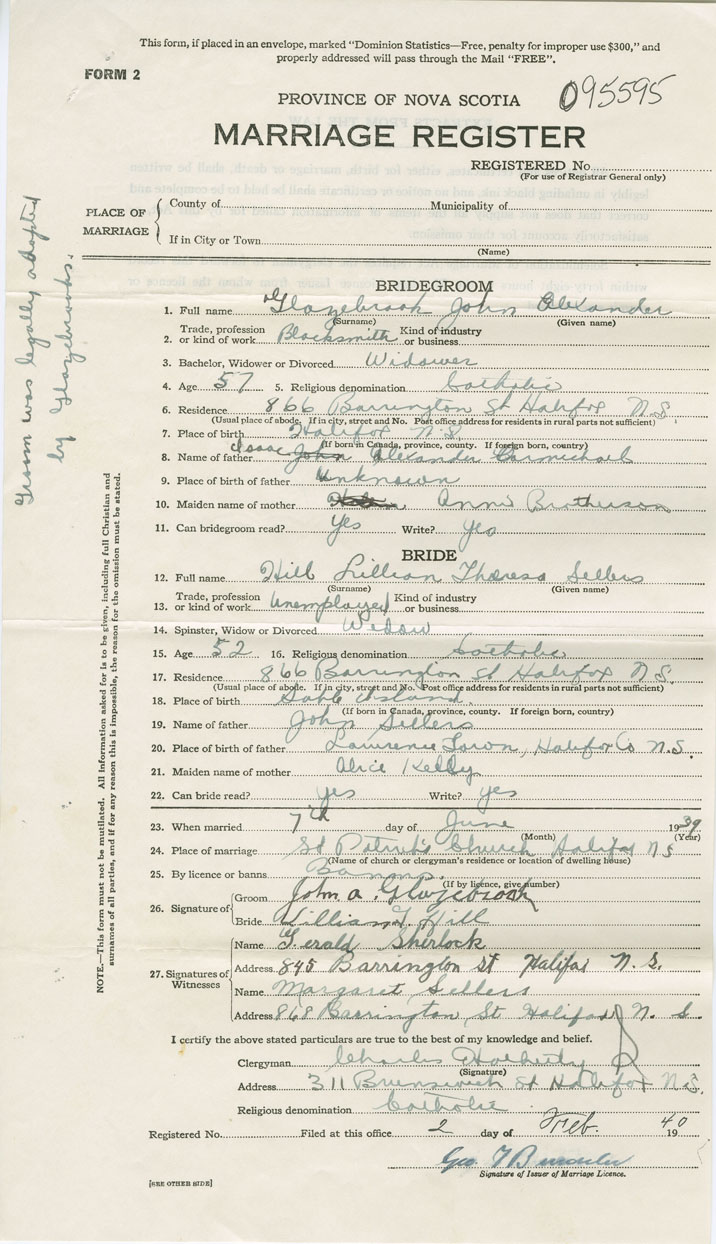 This form, if placed in an envelope, marked "Dominion Statistics—Free, penalty for improper use $300," and
properly addressed will pass through the Mail "FREE".
FORM 2
PROVINCE OF NOVA SCOTIA 095595
MARRIAGE REGISTER
REGISTERED No
(For use of Registrar General only)
PLACE OF MARRIAGE
County of Municipality of
If in City or Town
(Name)
Groom was legally adopted
by Glazebrooks.
BRIDEGROOM
1. Full name Glazebrook John Alexander
(Surname) (Given name)
2. Trade, profession or kind of work Blacksmith Kind of industry or business
3. Bachelor, Widower or Divorced Widower
4. Age 57 5. Religious denomination Catholic
6. Residence 866 Barrington St Halifax N.S.
(Usual place of abode. If in city, street and No. Post office address for residents in rural parts not sufficient)
7. Place of birth Halifax N.S.
(If born in Canada, province, county. If foreign born, country)
8. Name of father Isaac John Alexander Carmichael
9. Place of birth of father Unknown
10. Maiden name of mother Annie
11. Can bridegroom read? Yes Write? Yes
BRIDE
12. Full name Hill Lillian Theresa Sellers
(Surname) (Given name)
13. Trade, profession or kind of work Unemployed Kind of industry or business
14. Spinster, Widow or Divorced Widow
15. Age 52 16. Religious denomination Catholic
17. Residence 866 Barrington St Halifax N.S.
(Usual place of abode. If in city, street and No. Post office address for residents in rural parts not sufficient)
18. Place of birth Sable Island.
(If born in Canada, province, county. If foreign born, country)
19. Name of father John Sellers
20. Place of birth of father Lawrence Town, Halifax Co N.S.
21. Maiden name of mother Alice Kelly
22. Can bride read? yes Write? yes
23. When married 7th day of June 1939
(Month) (Year)
24. Place of marriage St Patrick's Church Halifax N S
(Name of church or clergyman's residence or location of dwelling house)
25. By licence or banns Banns.
(If by licence, give number)
26. Signature of
Groom John A. Glazebrook
Bride Lillian T Hill
27. Signatures of Witnesses
Name Gerald Sherlock
Address 845 Barrington St Halifax N. S.
Name Margaret Sellers
Address 868 Barrington St Halifax N. S.
I certify the above stated particulars are true to the best of my knowledge and belief.
Clergyman Charles
(Signature)
Address 311 Brunswick St Halifax N.S.
Religious denomination Catholic
Registered No. Filed at this office 2 day of Feb. 1940
Geo. F
Signature of Issuer of Marriage Licence.
[SEE OTHER SIDE]
NOTE.—This form must not be mutilated. All information asked for is to be given, including full Christian and
surnames of all parties, and if for any reason this is impossible, the reason for the omission must be stated.